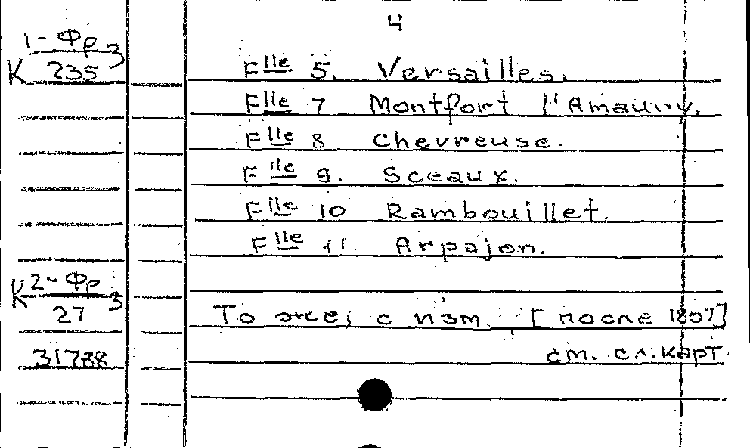 4
1-Фр 3
K 235
Flle 5. Versailles.
Flle 7 Montfort l'Amaury.
Flle 8 Chevreuse.
Flle 9. Sceaux.
Flle 10 Rambouillet.
Flle 11 Arpajon.
K 2-Фр 3
27
То же, с изм. [после 1807]
31788
см. сл. карт.